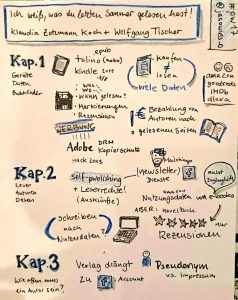 Ich weiß, was du letzten Sommer gelesen hast!
Klaudia Zotzmann-Koch + Wolfgang Tischer
Kap. 1
Geräte
Daten
Buchhändler
epub
tolino (mobi)
kindle 2011
was?
wo?
wann gelesen?
• Markierungen
• Rezensionen
WERBUNG
kaufen
+
lesen
viele Daten
amazon
goodreads
IMDb
alexa
Bezahlung von
Autoren nach
gelesenen Seiten
Adobe DRM
Kopierschutz
Hack 2013
Kap. 2
Leser
Autoren
Daten
Self-publishing
+ Leserrechte!
(Auskünfte)
Mailchimp
(Newsletter)
Dienste
amazon
Nutzungsdaten von e-books
ABER: novelbuch
nur
Rezensionen
(Schreiben
nach
Nutzerdaten?)
Kap. 3
Wie offen muss
ein Autor sein?
Verlag drängt
zu Account
Pseudonym
vs. Impressum